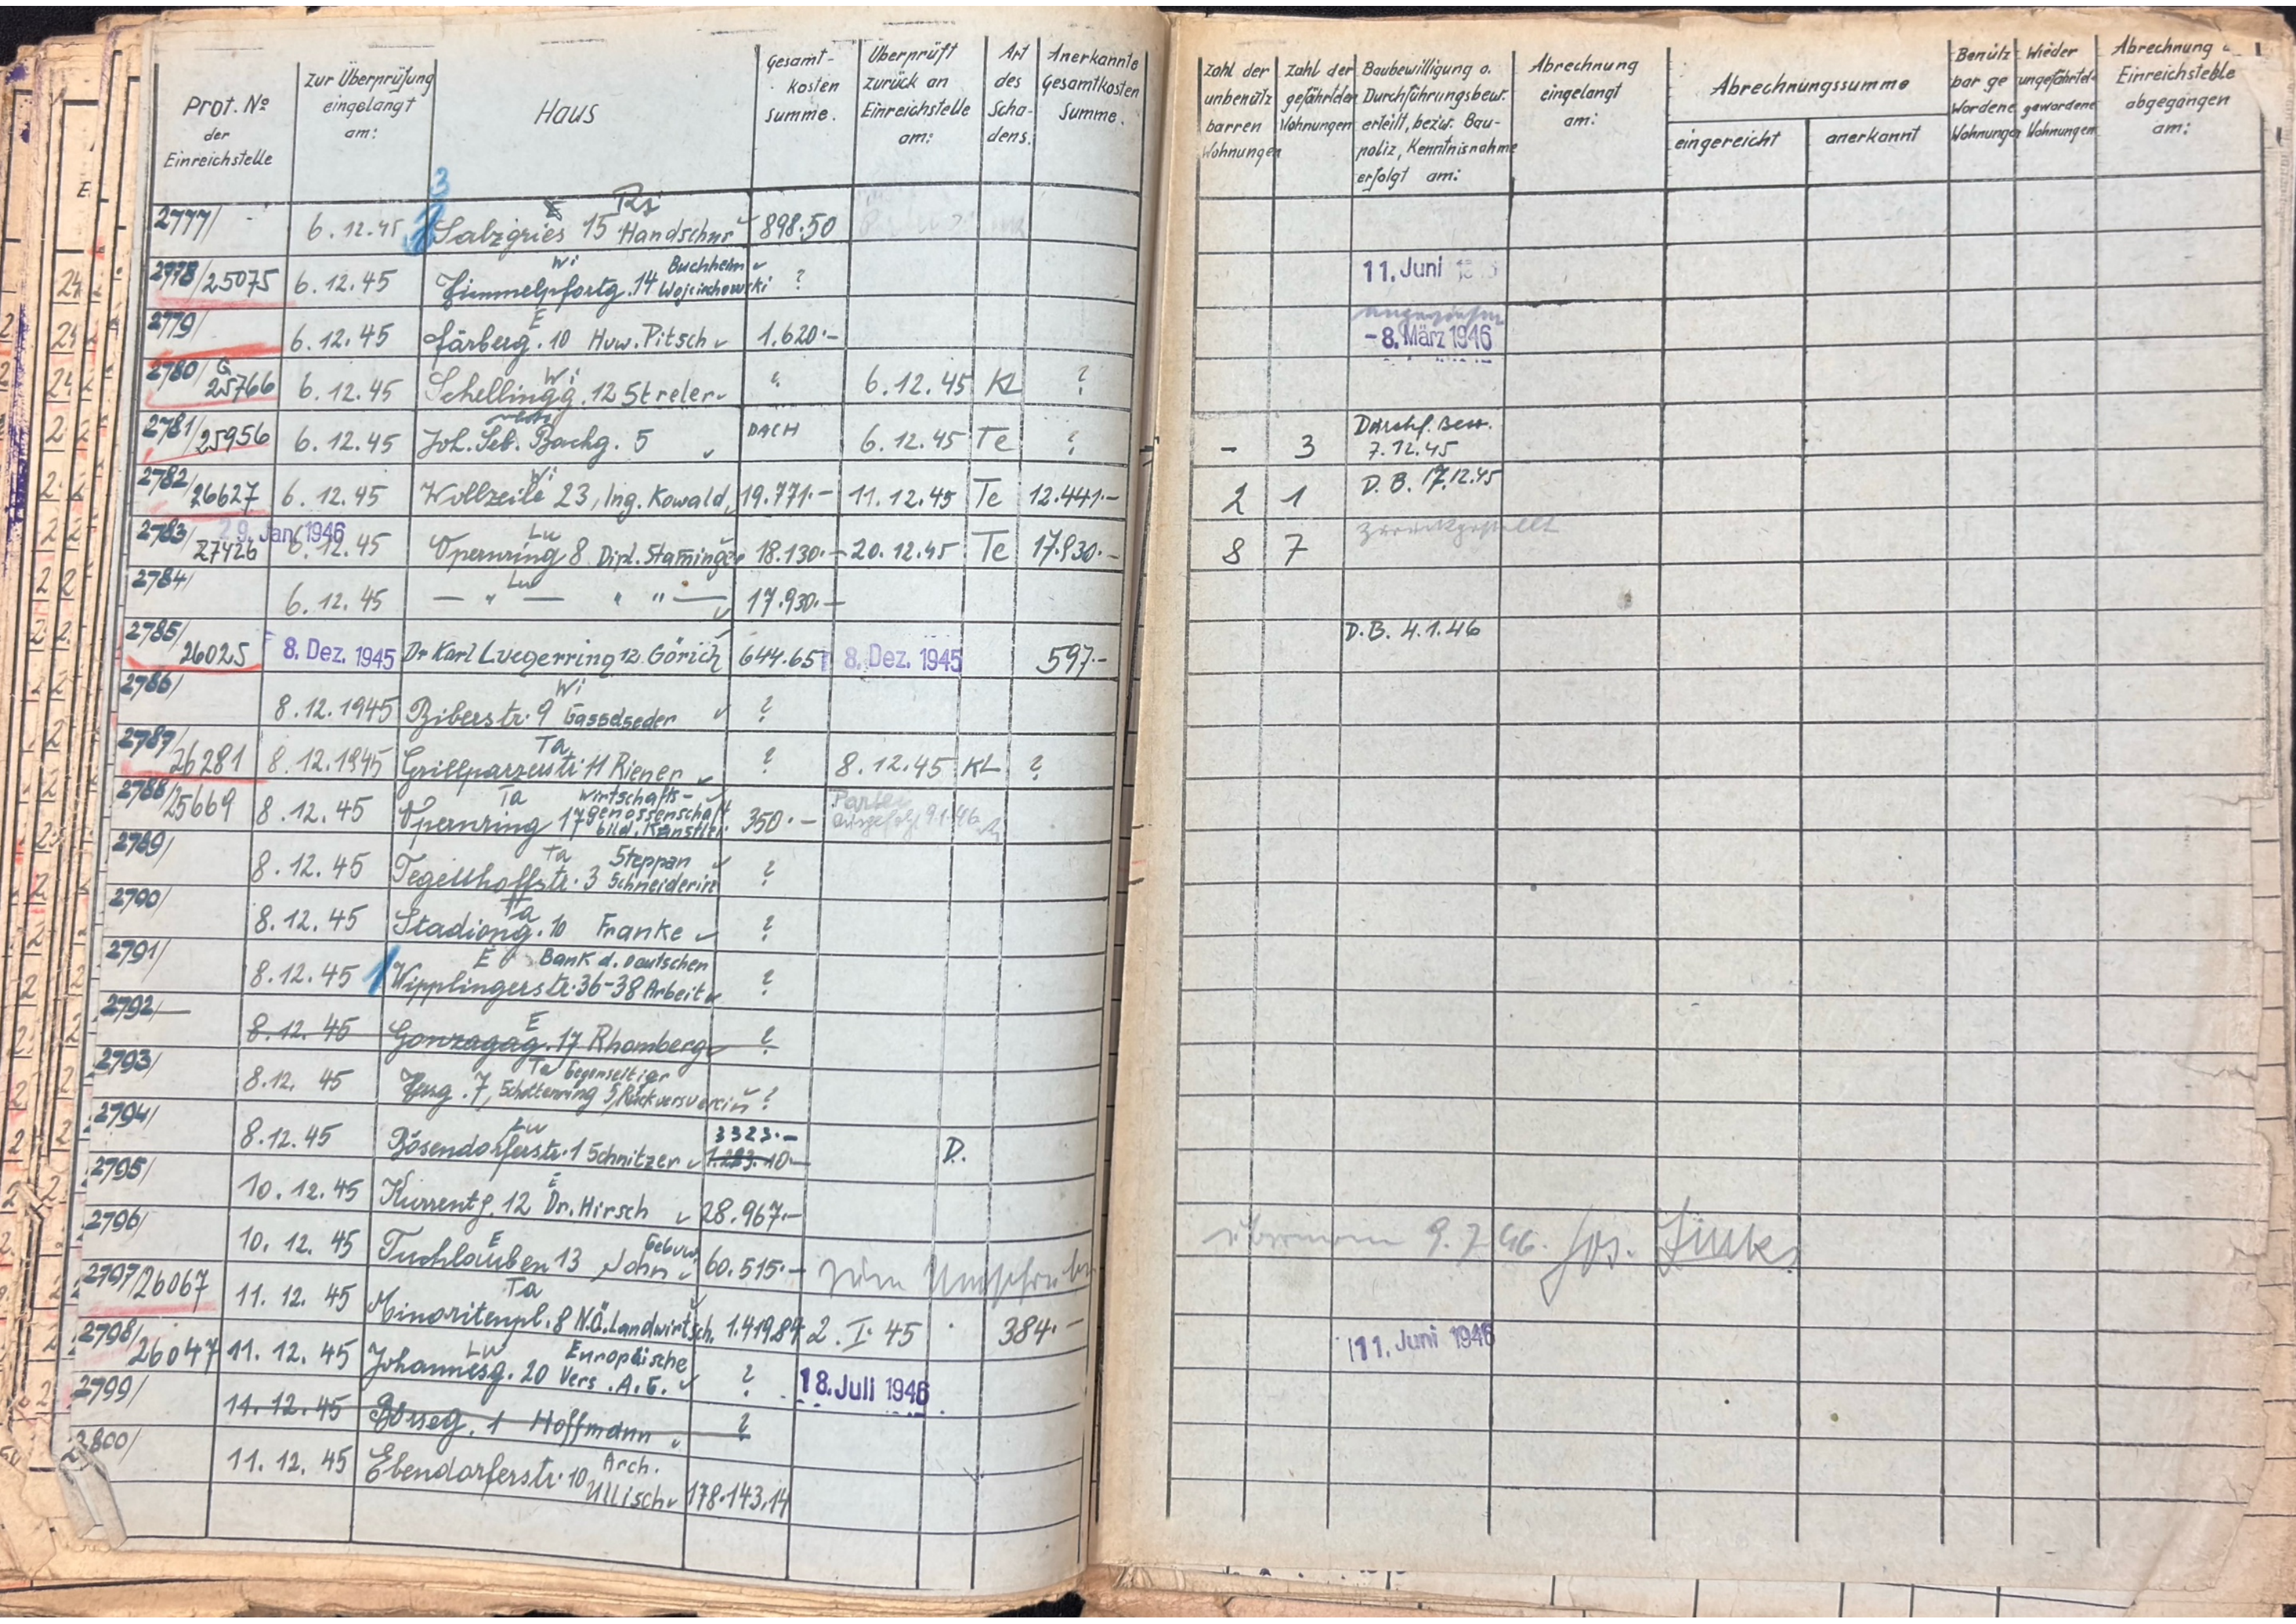 Prot. № der Einreichstelle | Zur Überprüfung eingelangt am: | Haus | Gesamt-kosten Summe. | Überprüft zurück an Einreichstelle am: | Art des Scha-dens. | Anerkannte Gesamtkosten Summe. | Zahl der unbenütz barren Wohnungen | Zahl der gefährdten Wohnungen | Baubewilligung o. Durchführungsbew. erteilt, bezw. Bau-poliz, Kenntnisnahme erfolgt am: | Abrechnung eingelangt am: | Abrechnungssumme eingereicht | anerkannt | Benütz bar ge wordene Wohnungen | Wieder ungefährtd- gewordene Wohnungen | Abrechnung Einreichstelle abgegangen am:
3
2777/ 6.12.45 Salzgries 15 Handschur 898.50
2778/25075 6.12.45 Wi Himmelpfortg. 14 Buchheim Wojcirchowski ? 11. Juni
2779/ 6.12.45 E Färberg. 10 Huw. Pitsch 1.620.- - 8. März 1946
2780/ G 25766 6.12.45 Wi Schellingg. 12 Streler ? 6.12.45 KL ?
2781/25956 6.12.45 Joh. Seb. Bachg. 5 DACH 6.12.45 Te ? - 3 Durchf. Bew. 7.12.45
2782/26627 6.12.45 Wi Wollzeile 23, Ing. Kowald 19.771.- 11.12.45 Te 12.441.- 2 1 D.B. 17.12.45
2783/27426 29. Jan. 1946 6.12.45 Lu Opernring 8 Dipl. Staminger 18.130.- 20.12.45 Te 17.930.- 8 7 zurückgestellt
2784/ 6.12.45 Lu — " — " " — 17.930.-
2785/26025 8. Dez. 1945 Dr Karl Luegerring 12 Görich 644.65 8. Dez. 1945 597.- D.B. 4.1.46
2786/ 8.12.1945 Wi Biberstr. 9 Gasselseder ?
2787/26281 8.12.1945 Ta Grillparzerstr. 11 Riener ? 8.12.45 KL ?
2788/25669 8.12.45 Ta Opernring 17 Wirtschafts-genossenschaft bild. Künstler 350.- Partei 9.1.46
2789/ 8.12.45 Ta Tegetthoffstr. 3 Steppan Schneiderin ?
2790/ 8.12.45 Ta Stadiong. 10 Franke ?
2791/ 8.12.45 E Wipplingerstr. 36-38 Bank d. Deutschen Arbeit ?
2792/ 8.12.45 E Gonzagag. 17 Rhomberg ?
2793/ 8.12. 45 Ta Hesg. 7, Schottenring 5, Gegenseitiger Rückversverein ?
2794/ 8.12.45 Lu Bösendorferstr. 1 Schnitzer 3323.- 1.283.10.- D.
2795/ 10.12.45 E Kurrentg. 12 Dr. Hirsch 28.967.-
2796/ 10.12.45 E Tuchlauben 13 Gebrw. John 60.515.- zum Umschreiben 9.7.46. Jos.
2797/26067 11.12.45 Ta Minoritenpl. 8 N.Ö. Landwirtsch. 1.419.84 2.I.45 384.-
2798/26047 11.12.45 Lu Johannesg. 20 Europäische Vers. A.G. ? 18. Juli 1946 11. Juni 1946
2799/ 11.12.45 Börseg. 1 Hoffmann ?
2800/ 11.12.45 Ebendorferstr. 10 Arch. Ullisch 178.143,14